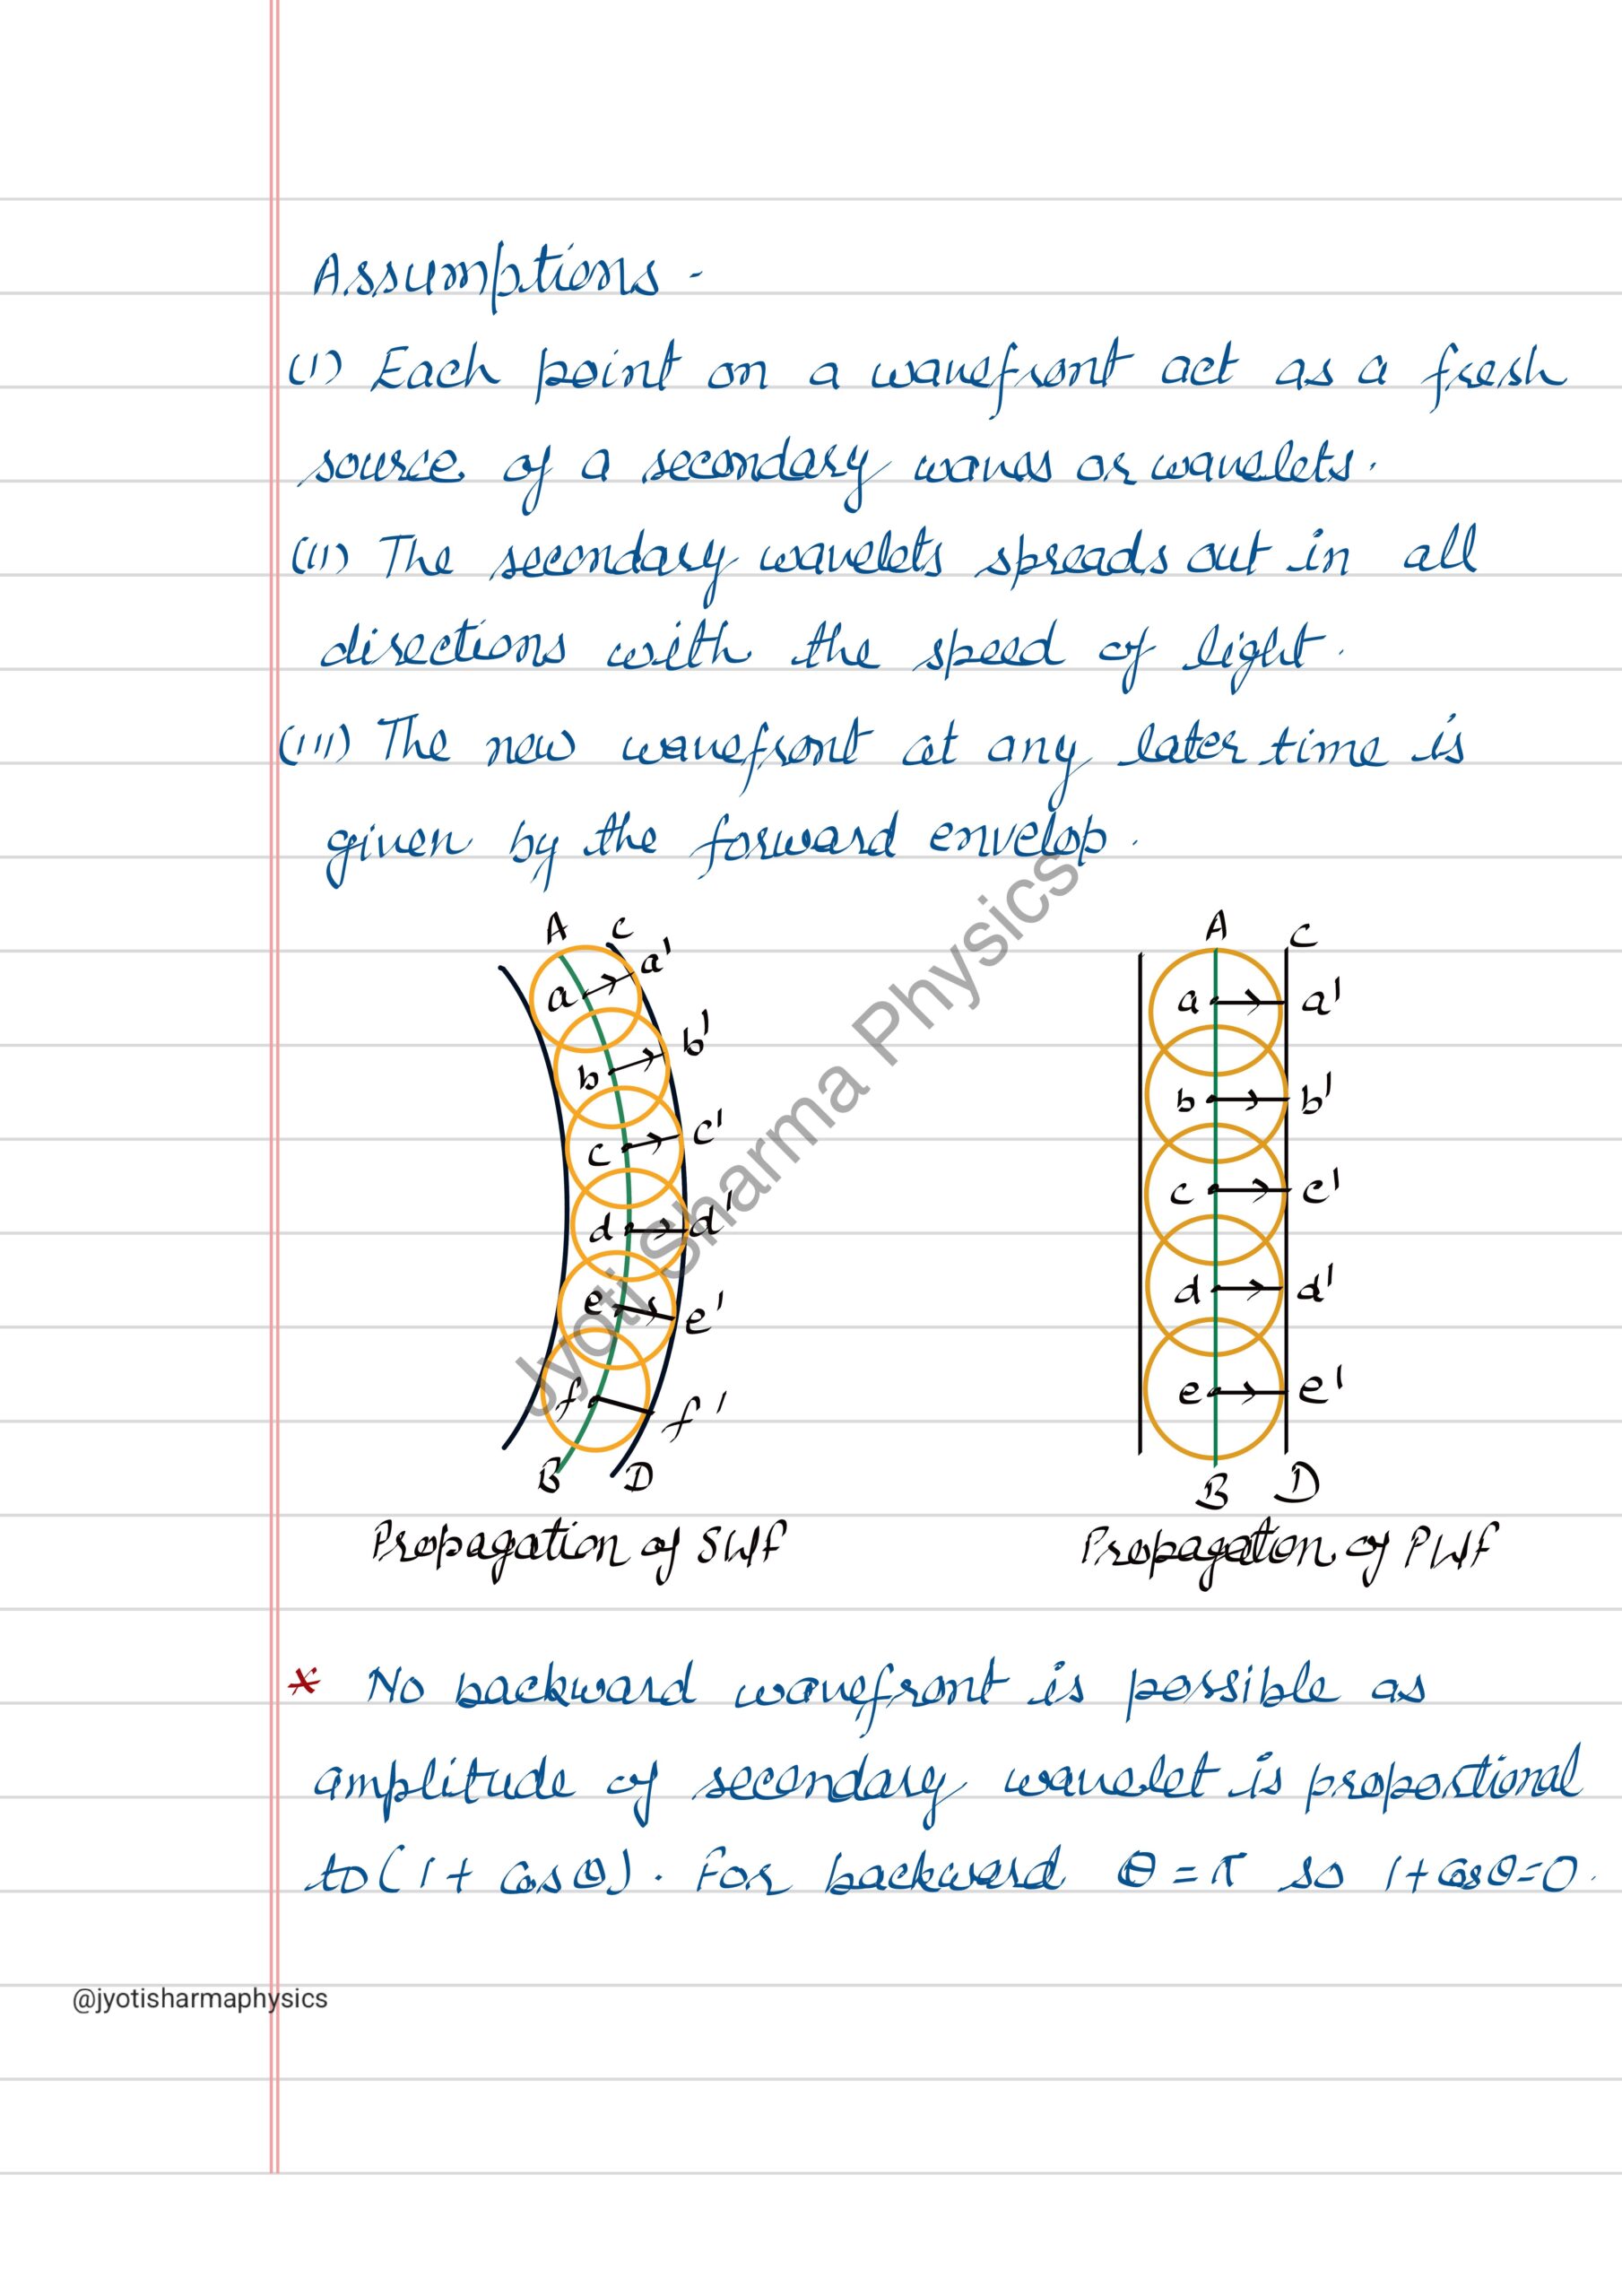 Assumptions -
(i) Each point on a wavefront act as a fresh
source of a secondary waves or wavelets.
(ii) The secondary wavelets spreads out in all
directions with the speed of light.
(iii) The new wavefront at any later time is
given by the forward envelop.
A C
a a'
b b'
c c'
d d'
e e'
f f'
B D
Propagation of SWF
A C
a a'
b b'
c c'
d d'
e e'
B D
Propagation of PWF
Jyoti Sharma Physics
* No backward wavefront is possible as
amplitude of secondary wavelet is proportional
to (1 + cosθ). For backward θ = π so 1+cosθ=0.
@jyotisharmaphysics